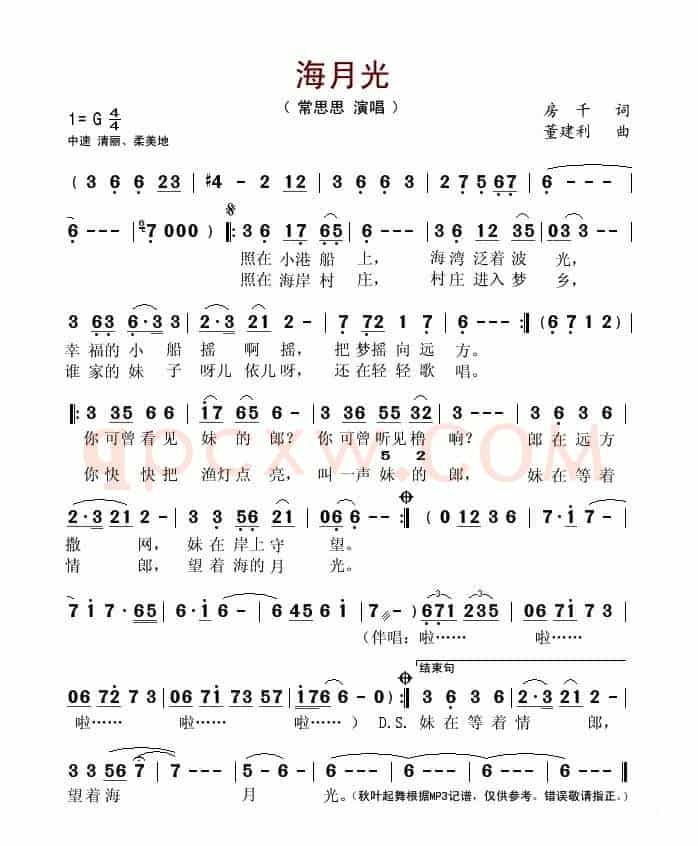 海月光
（ 常思思 演唱 ）
1= G 4/4
房 千 词
中速 清丽、柔美地
董建利 曲
( 3 6 6 23 | #4 - 2 12 | 3 6 3 3 | 27 5 67 | 6 - - -
6 - - - | 7 0 0 0 ) ‖: 3 6 17 65 | 6 - - - | 3 6 12 35 | 03 3 - - |
照在小港船 上， 海湾泛着波 光，
照在海岸村 庄， 村庄进入梦 乡，
3 63 6·3 3 | 2·3 21 2 - | 7 72 1 7 | 6 - - - :‖ ( 6 7 1 2 ) |
幸福的小 船 摇 啊 摇， 把梦摇向远 方。
谁家的妹 子 呀儿 依儿呀， 还在轻轻歌 唱。
‖: 3 35 6 6 | 17 65 6 - | 3 36 55 32 | 3 - - - | 6 3 6 6 |
你可曾看见 妹 的 郎？ 你可曾听见橹 响？ 郎在远方
5 2
你快 快把 渔灯点 亮， 叫一声妹的 郎， 妹在等着
2·3 21 2 - | 3 3 56 21 | 06 6 - - :‖ ( 0 12 3 6 | 7·1 7 -
撒 网， 妹在岸上守 望。
情 郎， 望着海的月 光。
7 1 7·65 | 6 - - 6 - | 6 45 6 1 | 7 - - ) 671 235 | 06 71 3 - |
（伴唱：啦…… 啦……
结束句
06 72 7 3 | 07 65 7 3 | 07 23 57 | 176 6 - 0 ) :‖ 3 6 3 6 | 2·3 21 2 - |
啦…… 啦…… 啦…… ） D.S. 妹在等着情 郎，
3 3 56 7 - | 7 - - - | 5 - 6 - | 6 - - - | 6 - - - | 6 - - - ‖
望着海 月 光。（秋叶起舞根据MP3记谱，仅供参考。错误敬请指正。）
qpcxw.COM